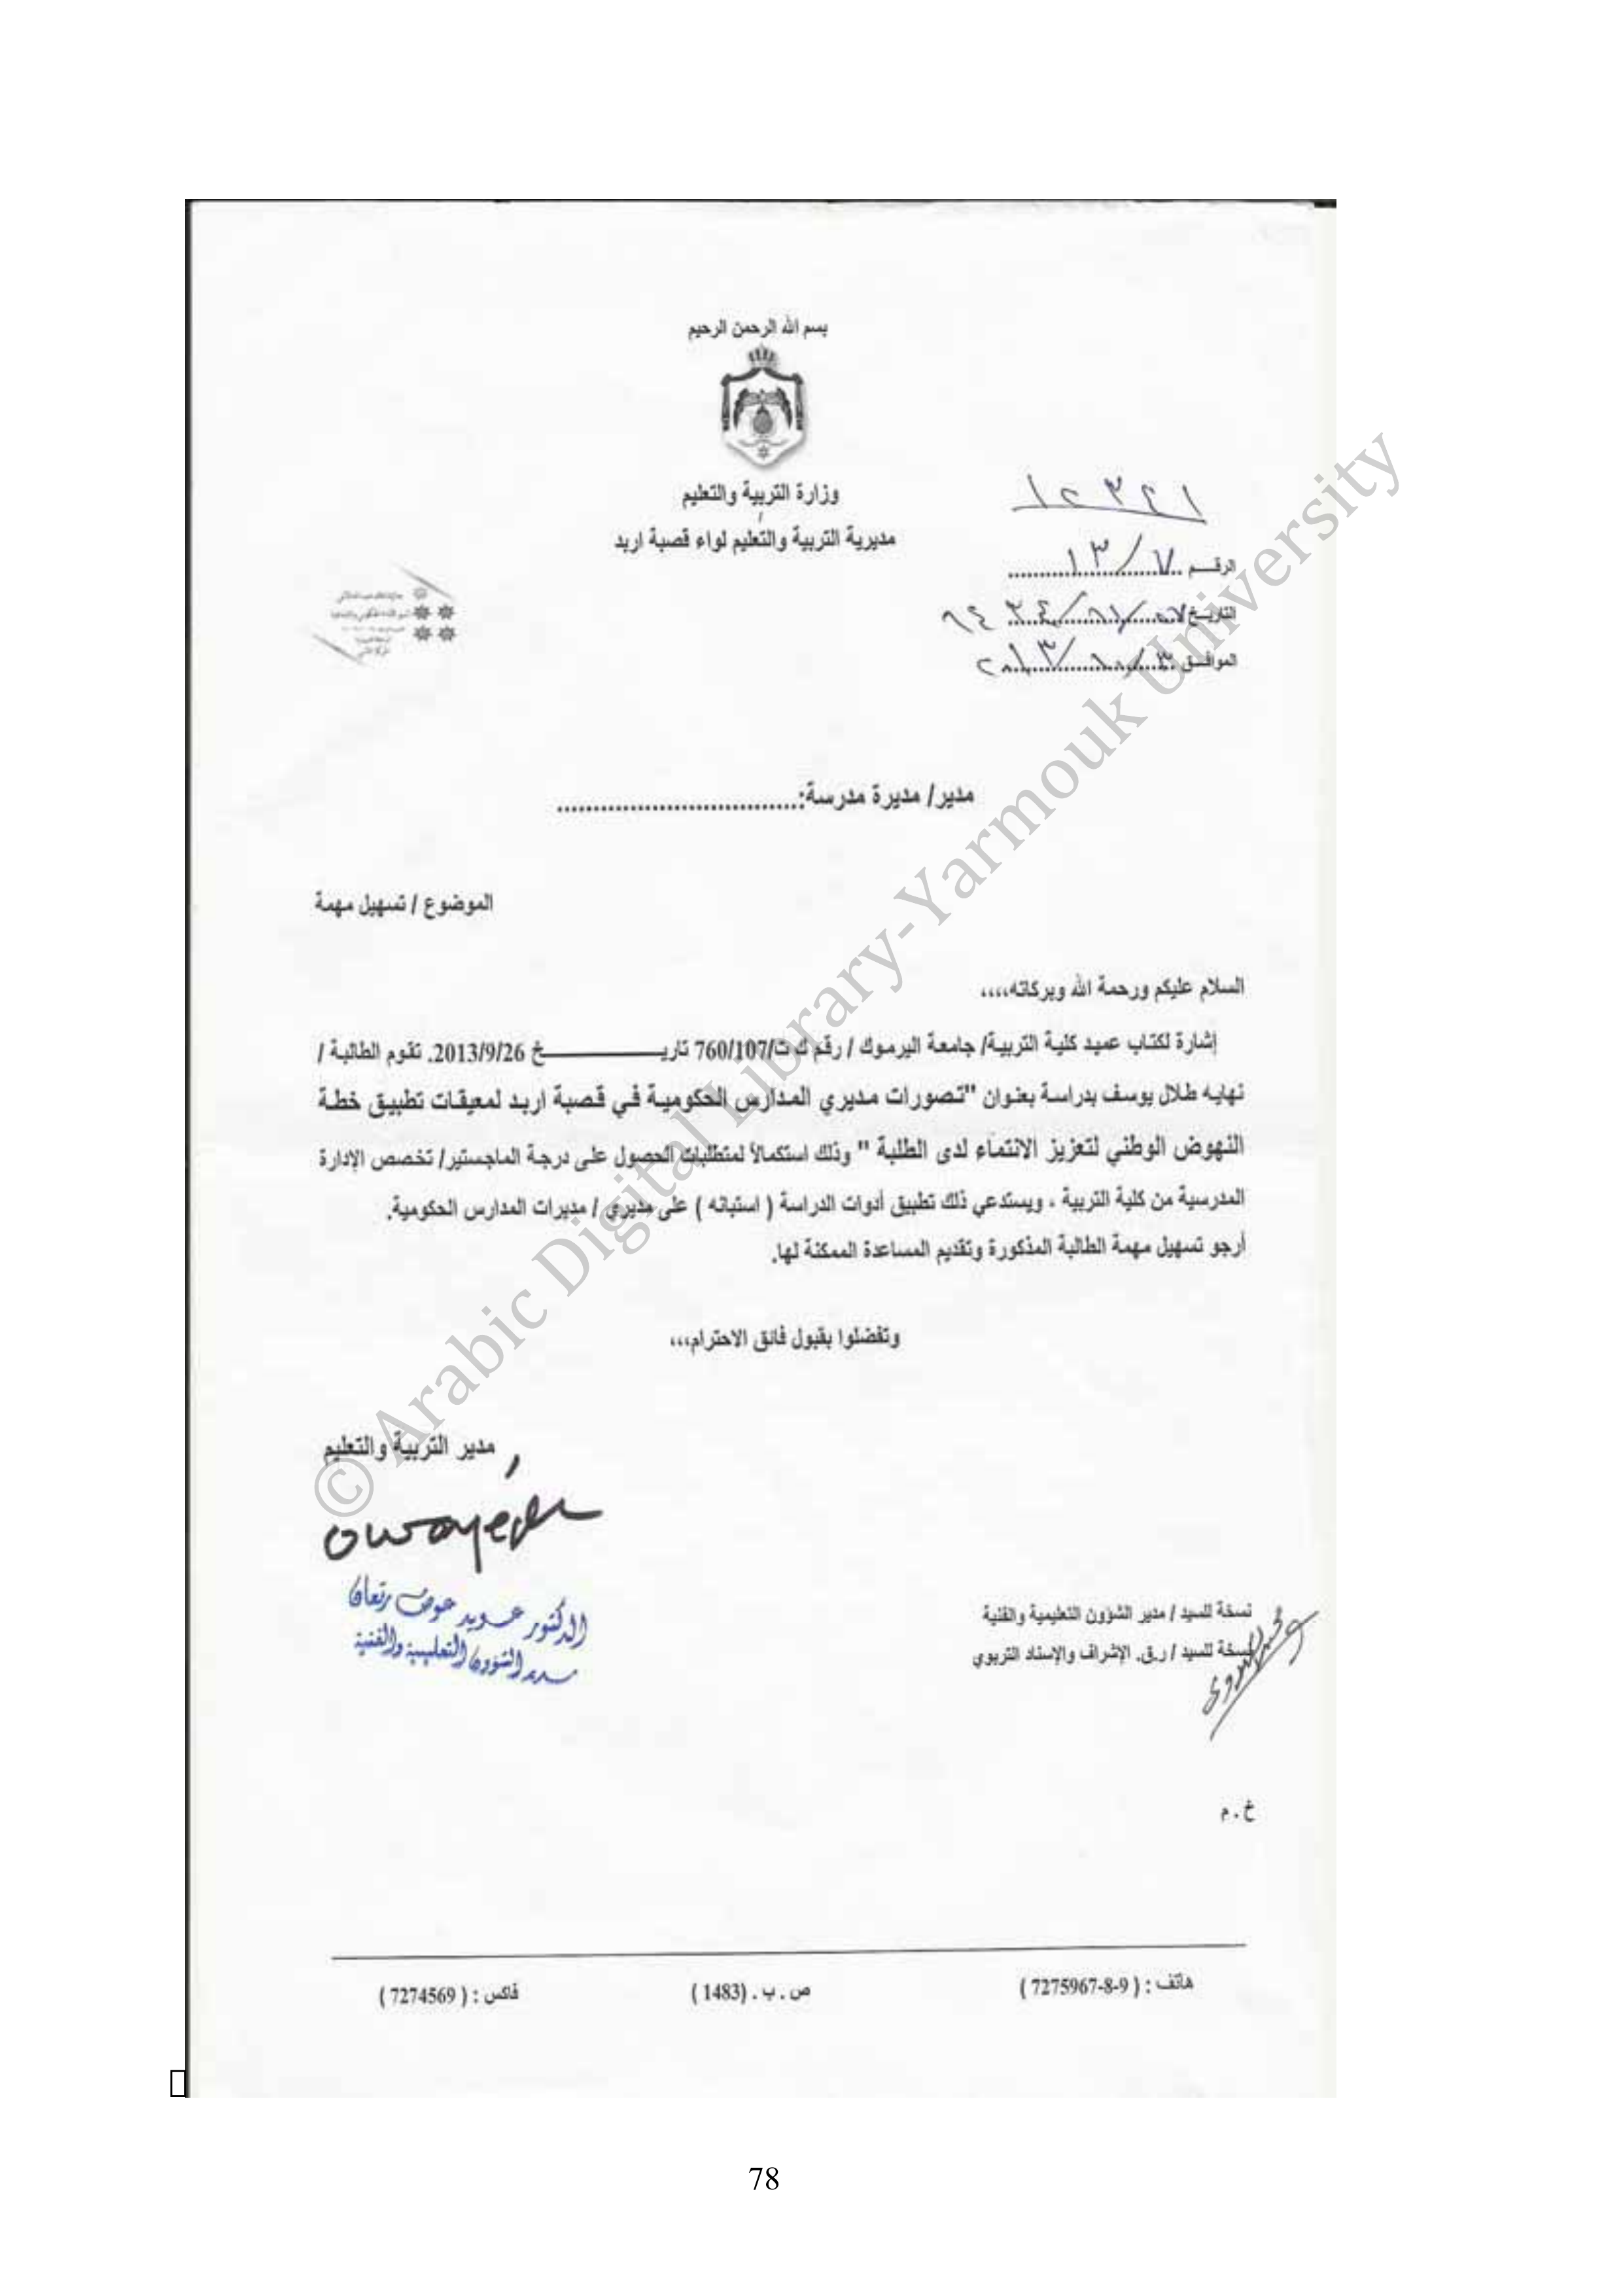 بسم الله الرحمن الرحيم
وزارة التربية والتعليم
مديرية التربية والتعليم لواء قصبة اربد
١٢٣٤١
الرقـــم ١٣/٧
التاريـــخ
الموافـــق ٢٠١٣/١٠/٣
مدير/ مديرة مدرسة:.................................
الموضوع / تسهيل مهمة
السلام عليكم ورحمة الله وبركاته،،،،
إشارة لكتاب عميد كلية التربية/ جامعة اليرموك / رقم ك ت/760/107 تاريـــــــــــــخ 2013/9/26. تقوم الطالبة /
نهايه طلال يوسف بدراسة بعنوان "تصورات مديري المدارس الحكومية في قصبة اربد لمعيقات تطبيق خطة
النهوض الوطني لتعزيز الانتماء لدى الطلبة " وذلك استكمالاً لمتطلبات الحصول على درجة الماجستير/ تخصص الإدارة
المدرسية من كلية التربية ، ويستدعي ذلك تطبيق أدوات الدراسة ( استبانه ) على مديري / مديرات المدارس الحكومية.
أرجو تسهيل مهمة الطالبة المذكورة وتقديم المساعدة الممكنة لها.
وتفضلوا بقبول فائق الاحترام،،،
مدير التربية والتعليم
owayed
الدكتور عويد عوض
مدير الشؤون التعليمية والفنية
نسخة للسيد / مدير الشؤون التعليمية والفنية
نسخة للسيد / ر.ق. الإشراف والإسناد التربوي
خ . م
هاتف : ( 7275967-8-9 )
ص . ب . (1483 )
فاكس : ( 7274569 )
© Arabic Digital Library-Yarmouk University
78